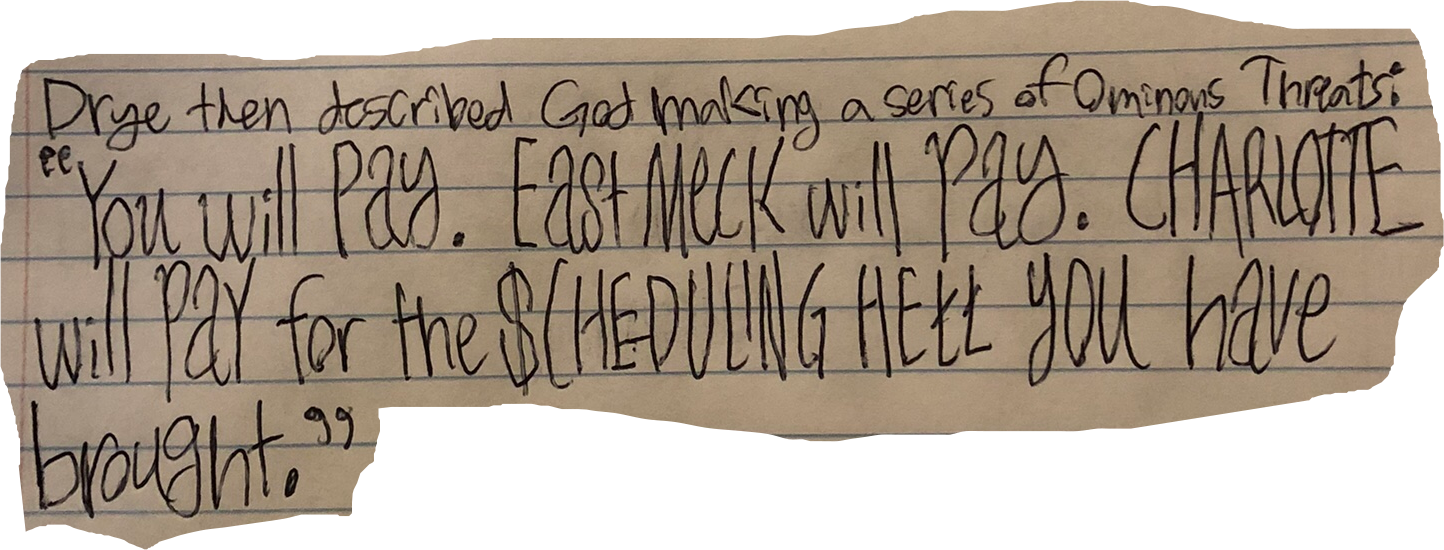 Drye then described God making a series of Ominous Threats:
"You will Pay. East Meck will Pay. CHARLOTTE
will PaY for the $CHEDULING HELL you have
brought."